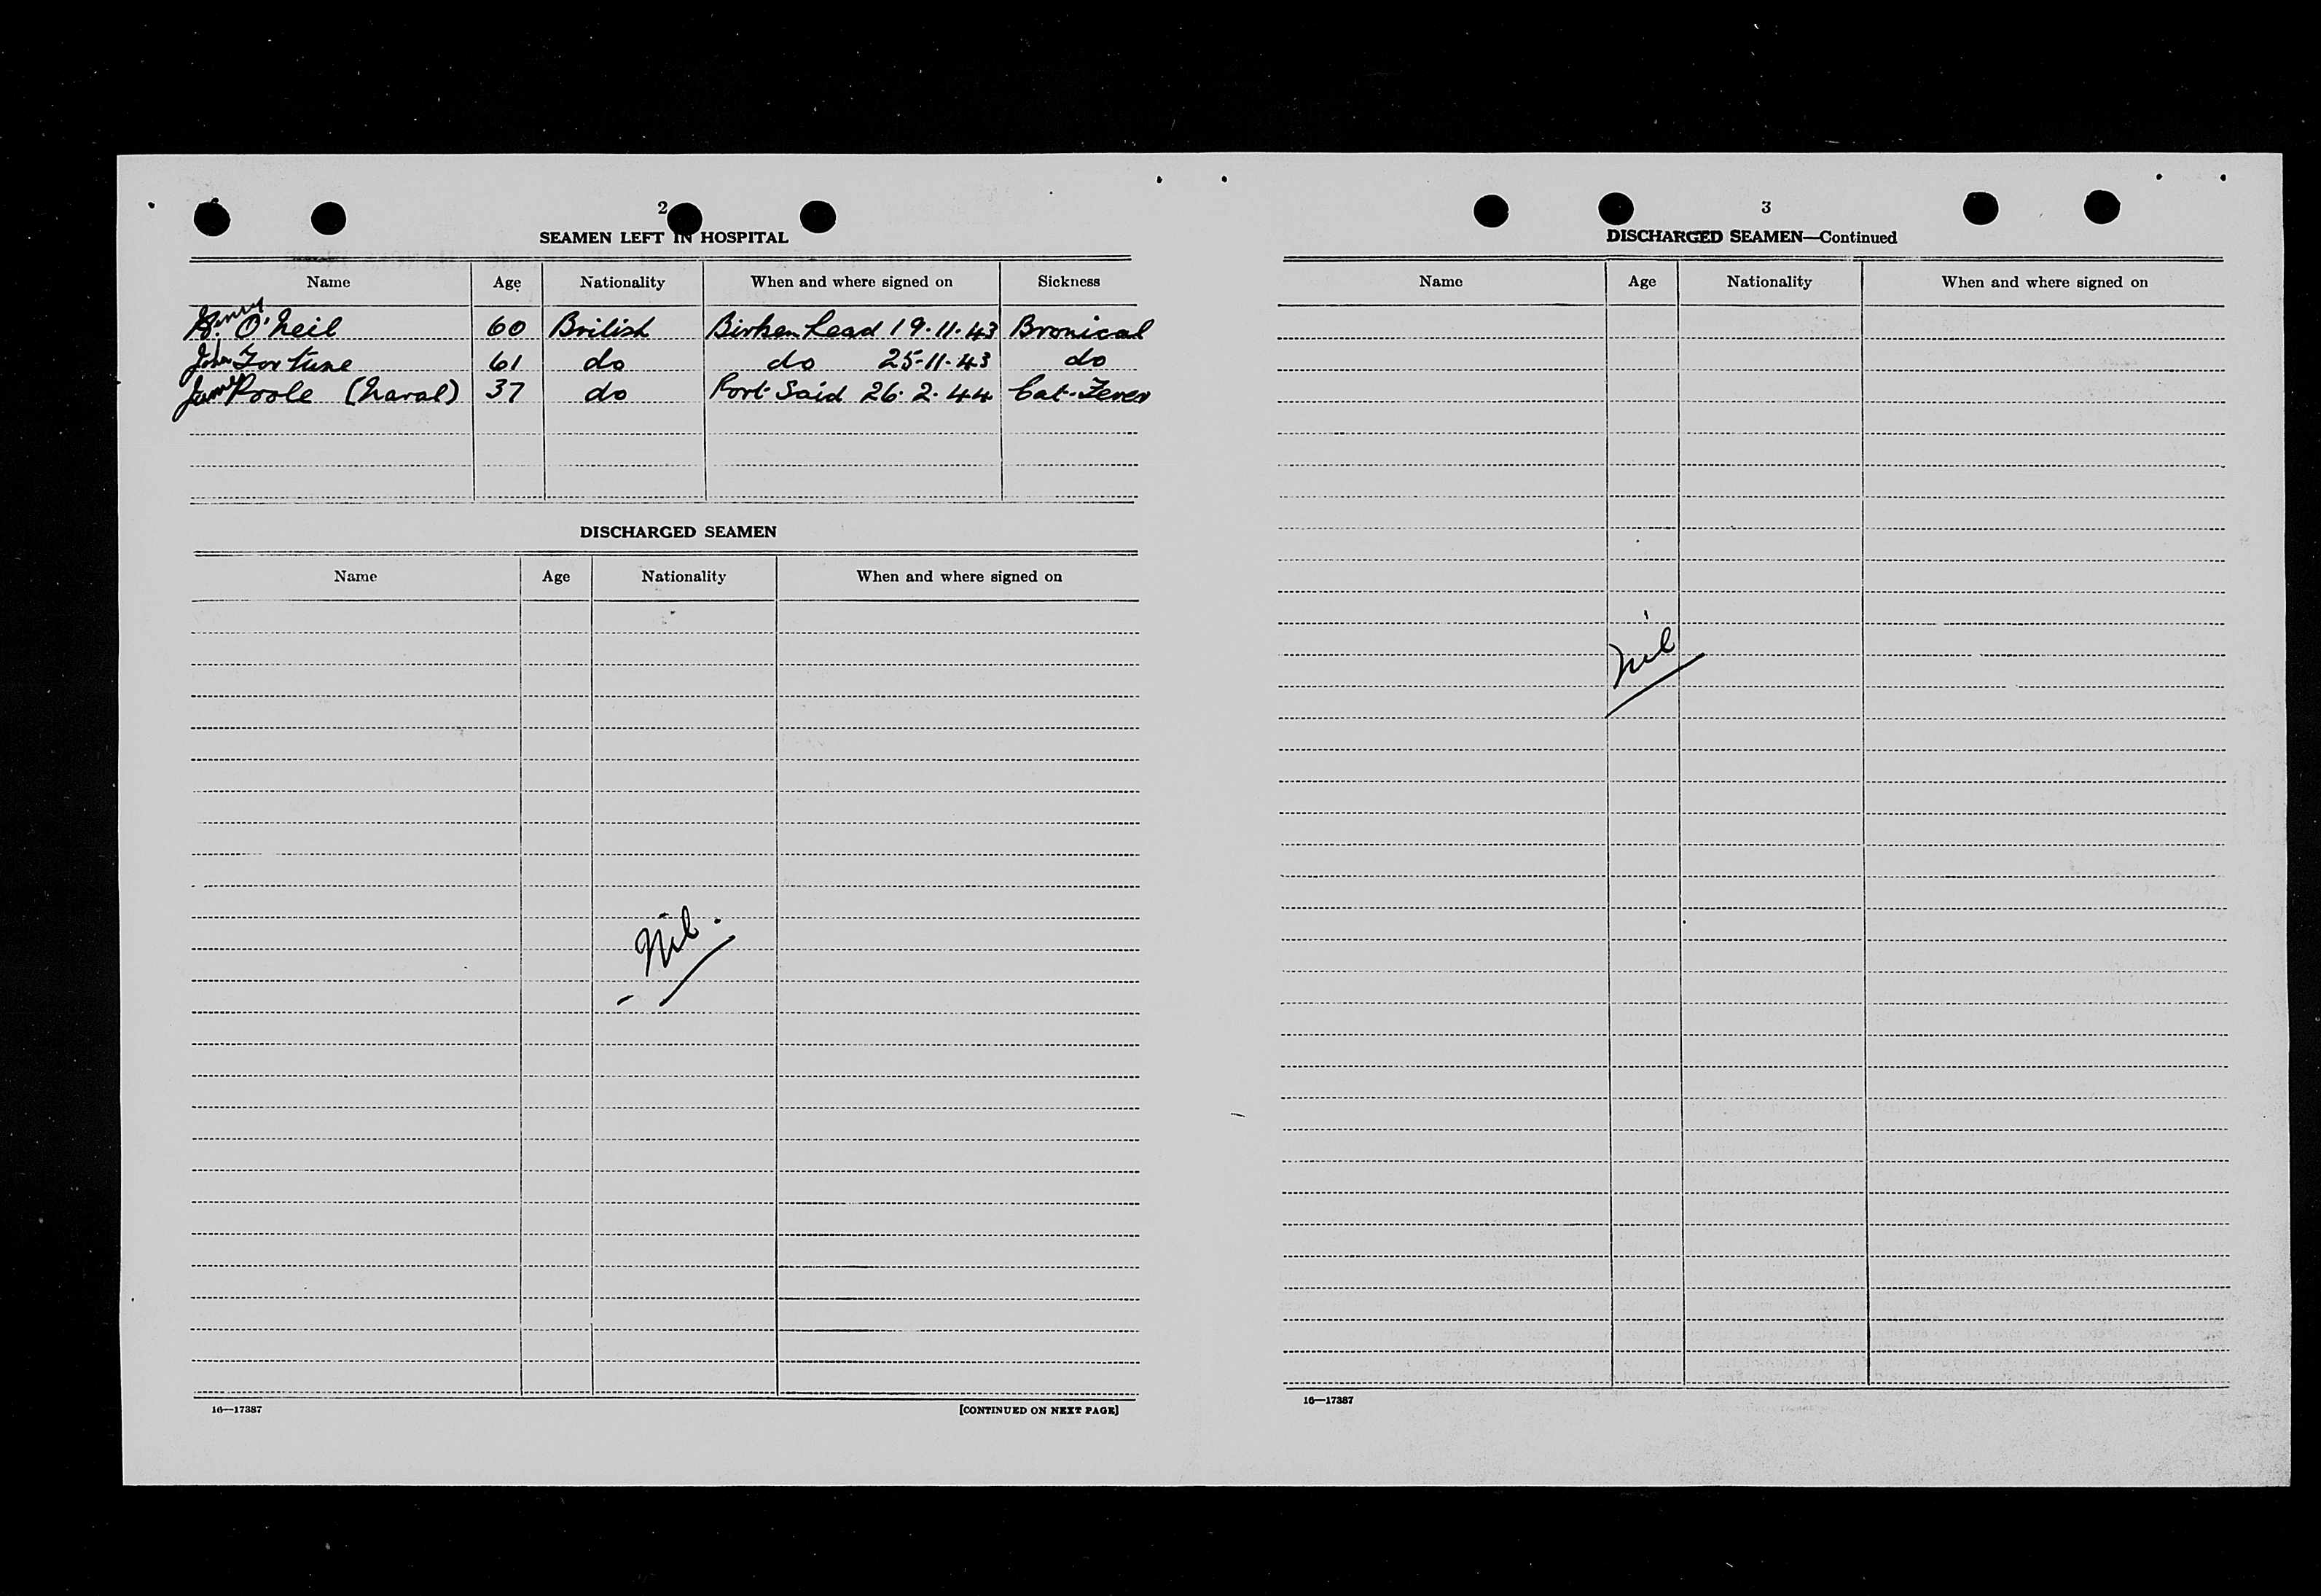 2
SEAMEN LEFT IN HOSPITAL
Name Age Nationality When and where signed on Sickness
Henry O'Neil 60 British Birkenhead 19.11.43 Bronical
John Fortune 61 do do 25-11-43 do
James Poole (Naval) 37 do Port Said 26.2.44 Cat-Fever
DISCHARGED SEAMEN
Name Age Nationality When and where signed on
Nil.
16—17387 [CONTINUED ON NEXT PAGE]
3
DISCHARGED SEAMEN—Continued
Name Age Nationality When and where signed on
Nil
16—17387